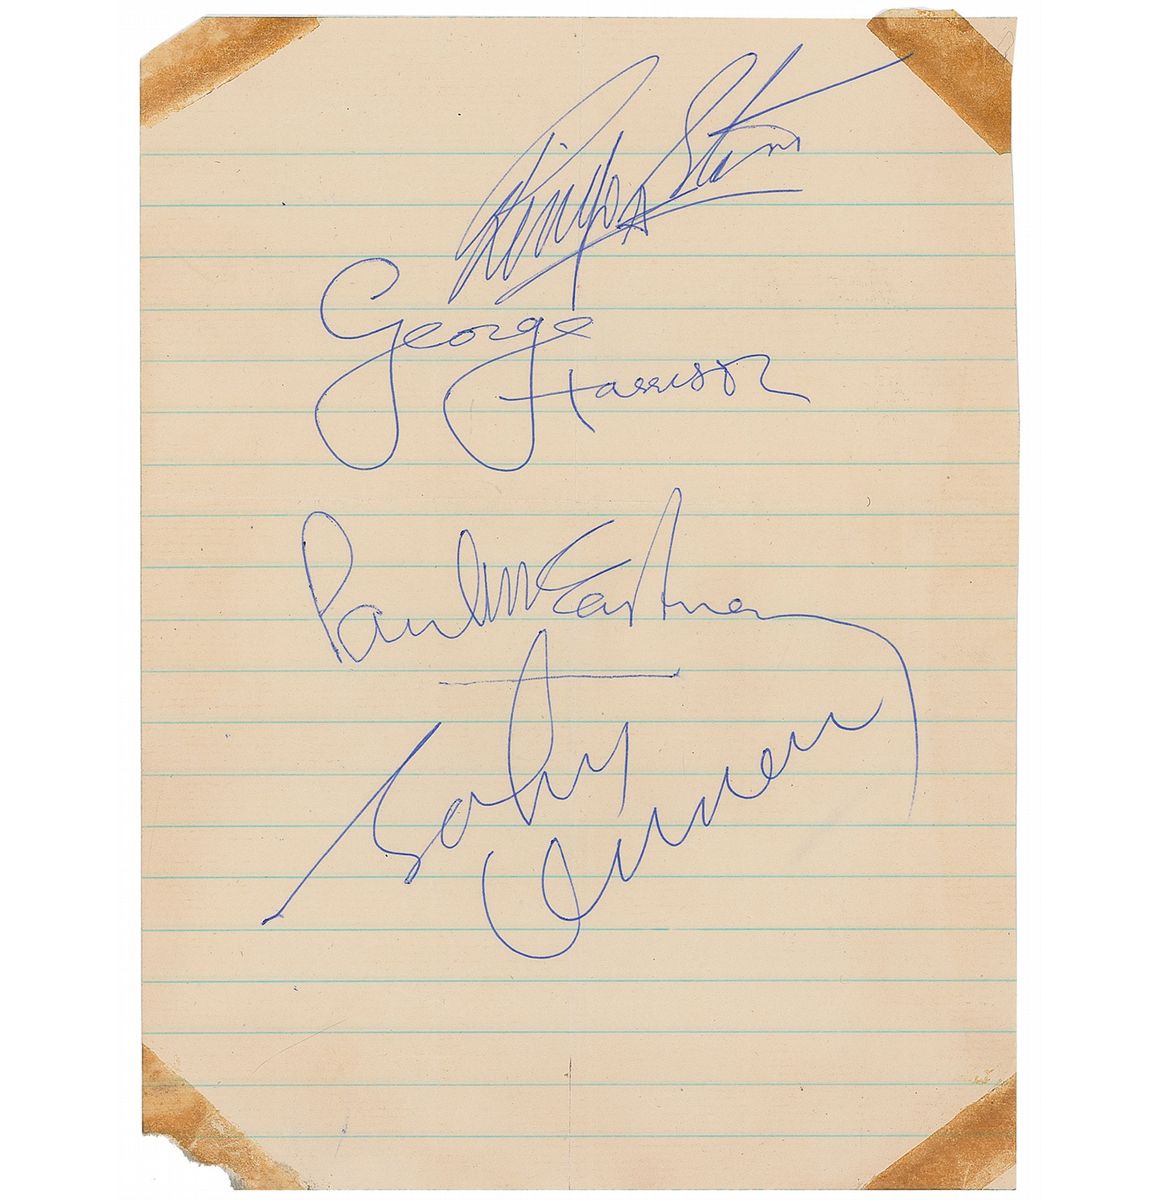 Ringo Starr
George
Harrison
Paul McCartney
John
Lennon